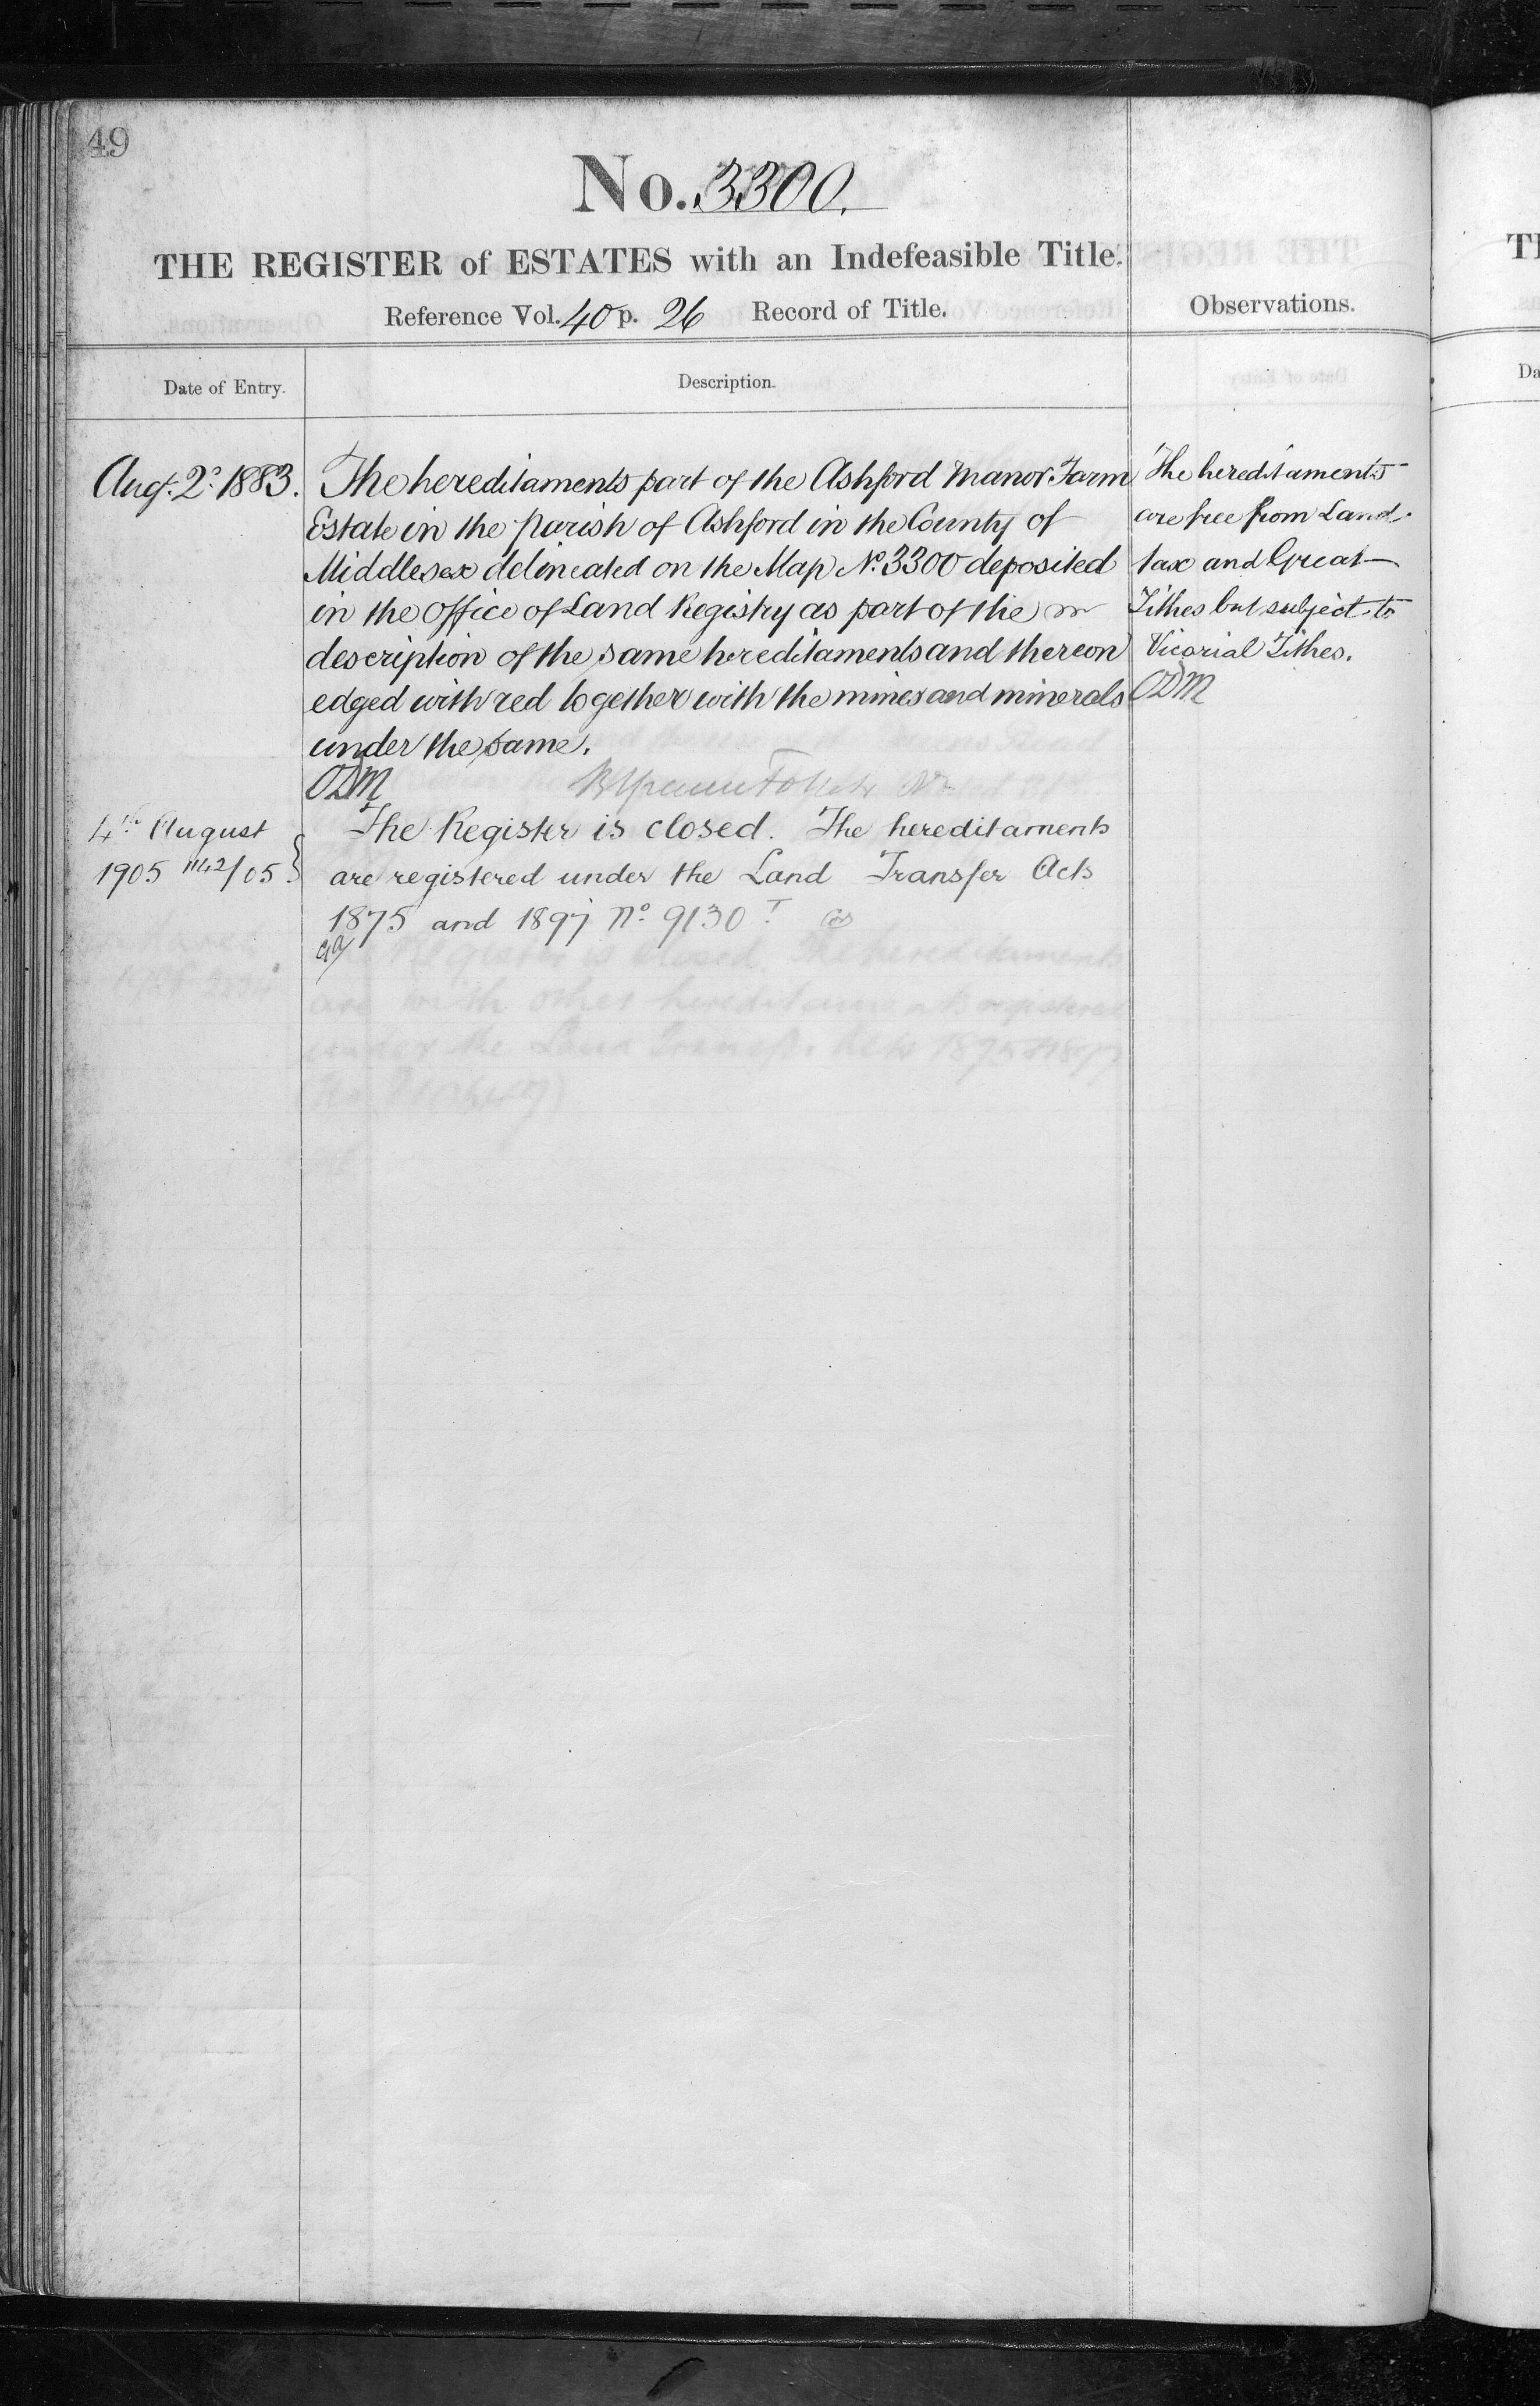 49
No. 3300.
THE REGISTER of ESTATES with an Indefeasible Title.
Reference Vol. 40 p. 26 Record of Title.
Observations.
Date of Entry.
Description.
Augt. 2d 1883.
The hereditaments part of the Ashford Manor Farm
Estate in the Parish of Ashford in the County of
Middlesex delineated on the Map No. 3300 deposited
in the Office of Land Registry as part of the
description of the same hereditaments and thereon
edged with red together with the mines and minerals
under the same.
ODM
The hereditaments
are free from Land
tax and Great
Tithes but subject to
Vicarial Tithes.
ODM
4th August
1905 1142/05
The Register is closed. The hereditaments
are registered under the Land Transfer Acts
1875 and 1897 No. 9130